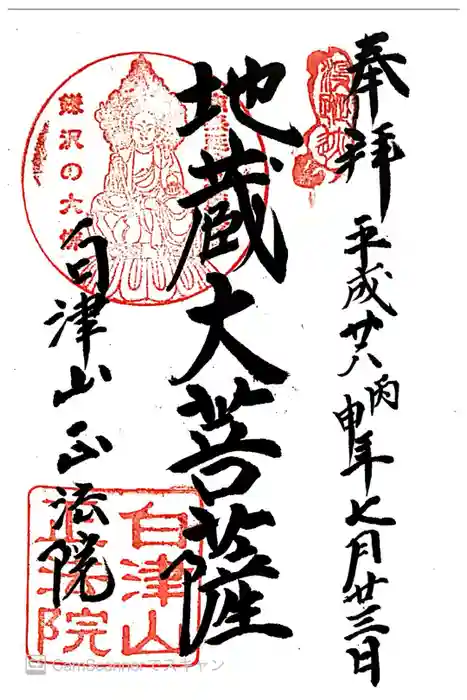 奉拝
平成廿八丙申年七月廿三日
地蔵大菩薩
白津山正法院
鎌沢の大佛
白津山
正法院
CamScannerでスキャン